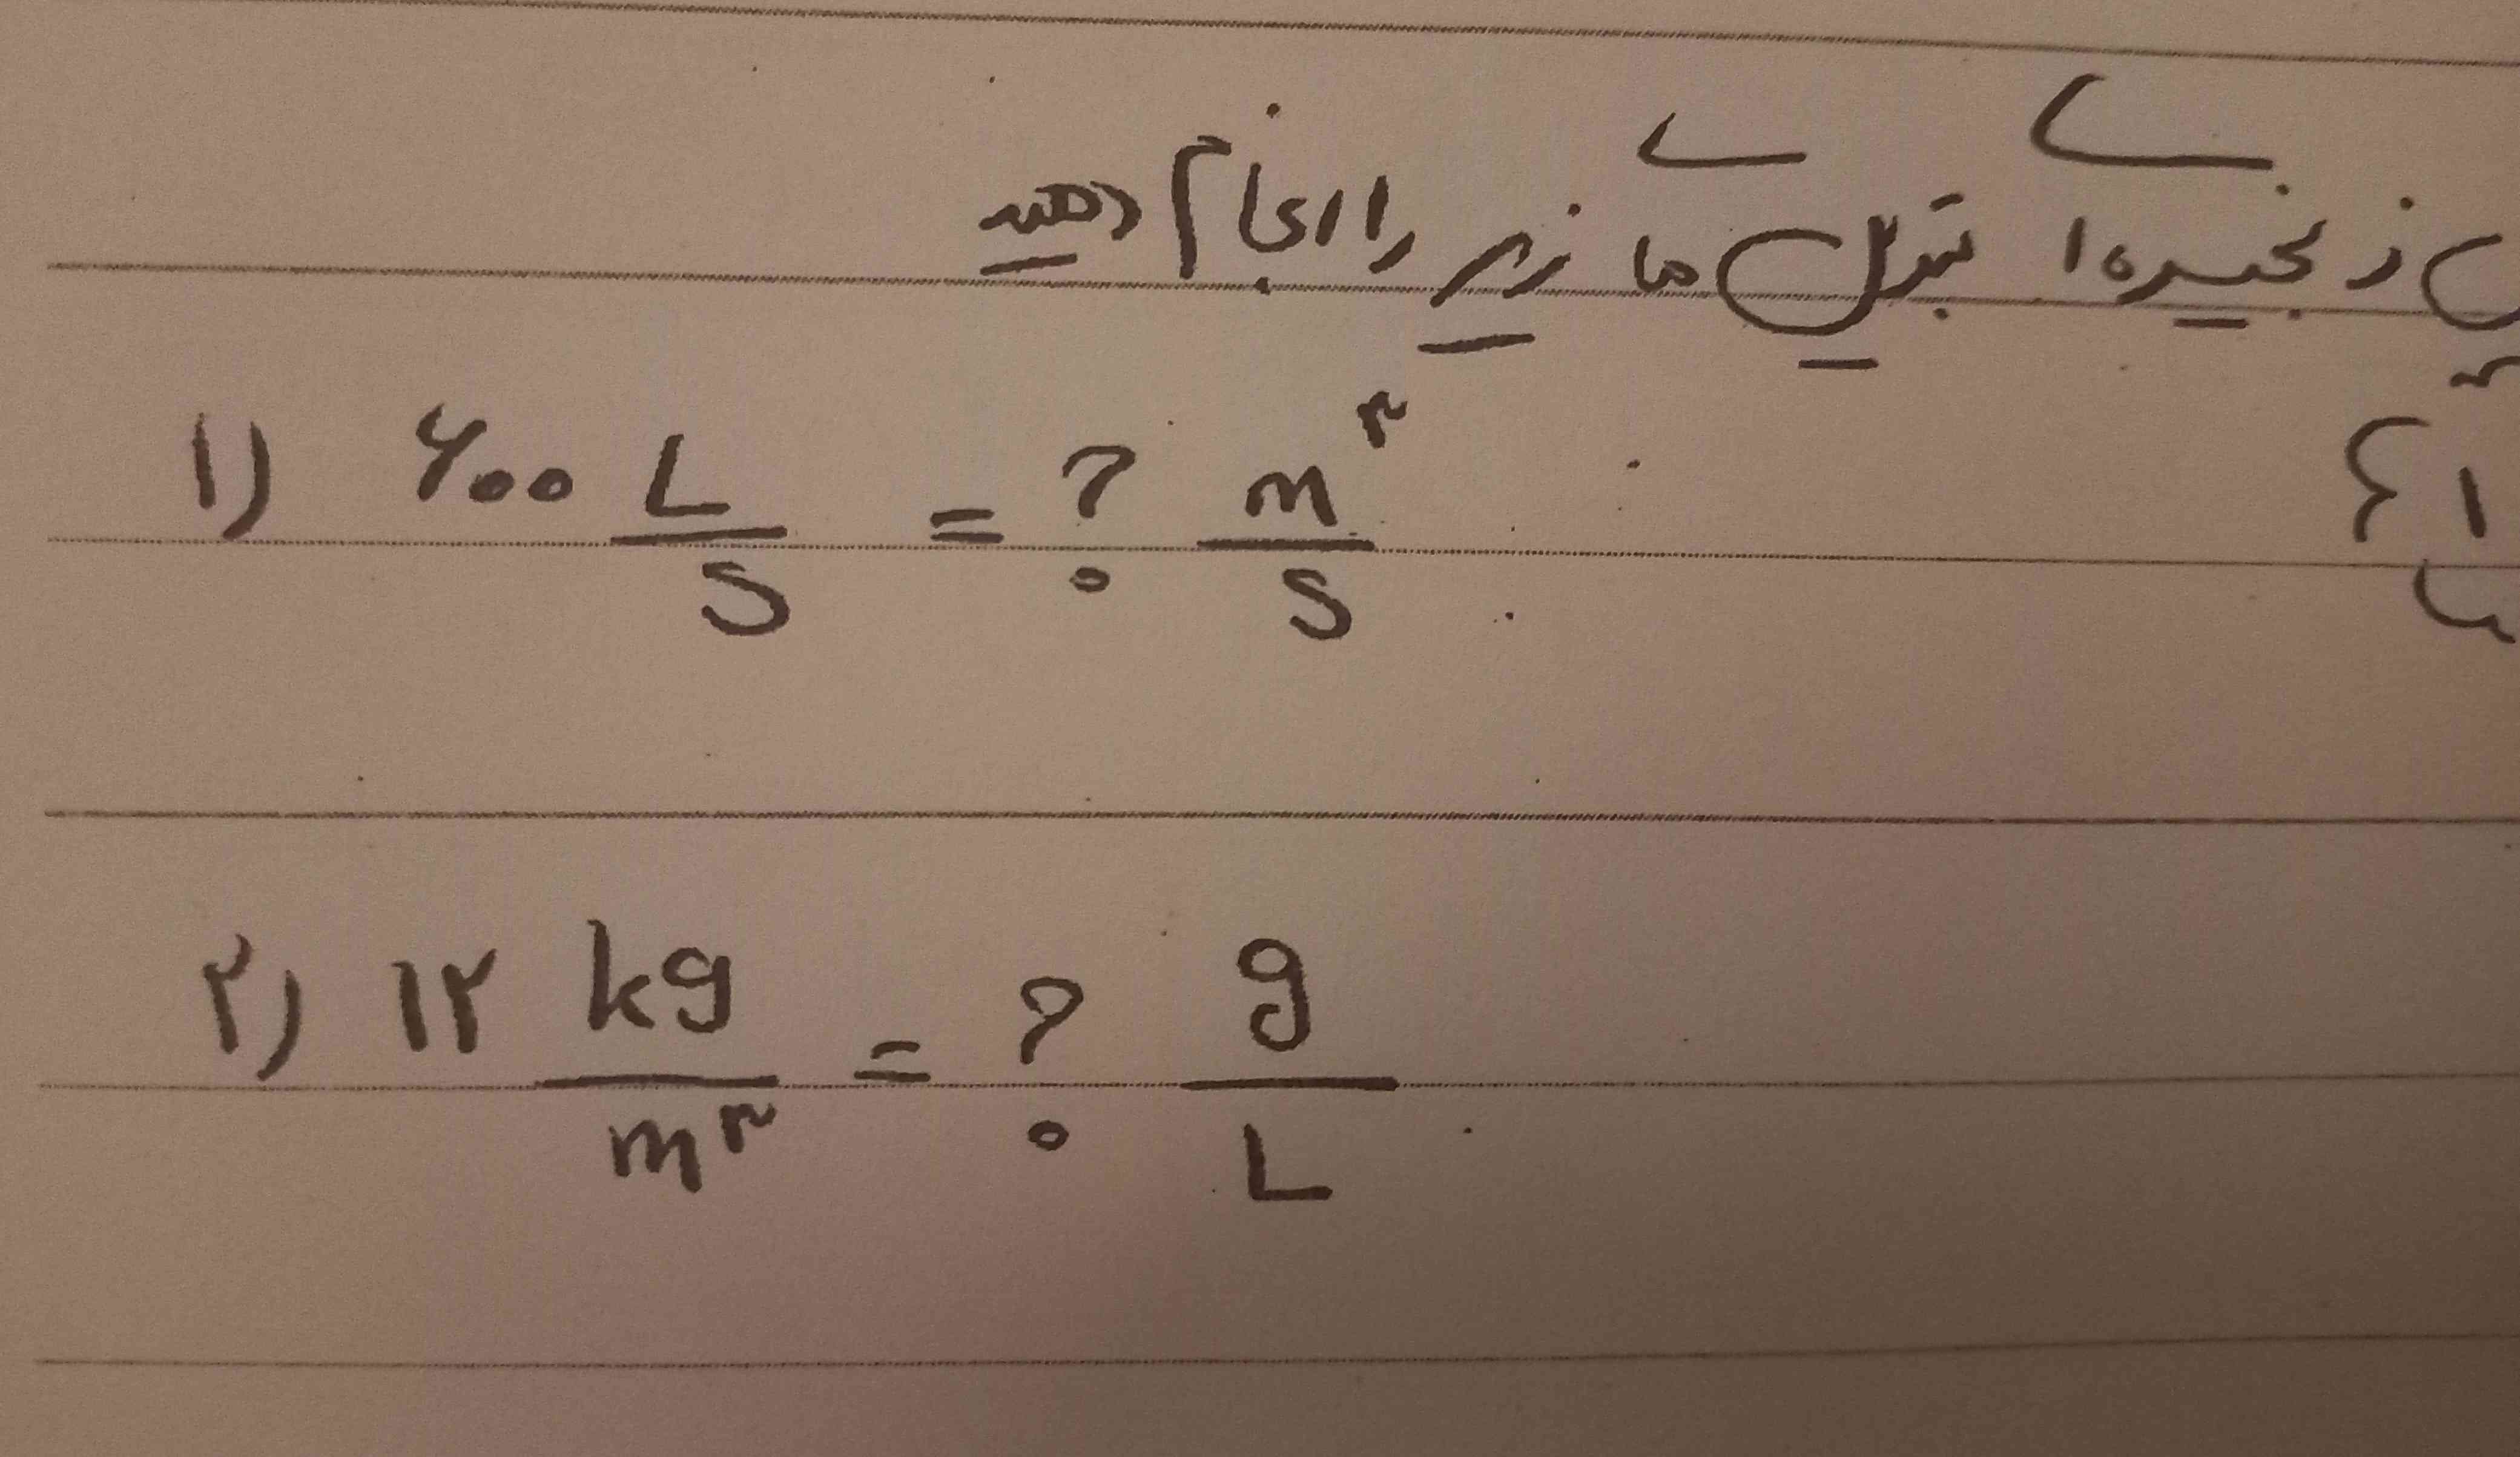 زنجیره ا تبدیل ها زیر را انجام دهید
۱) ۶۰۰ L/S = ? m³/S
۲) ۱۲ kg/m³ = ? g/L